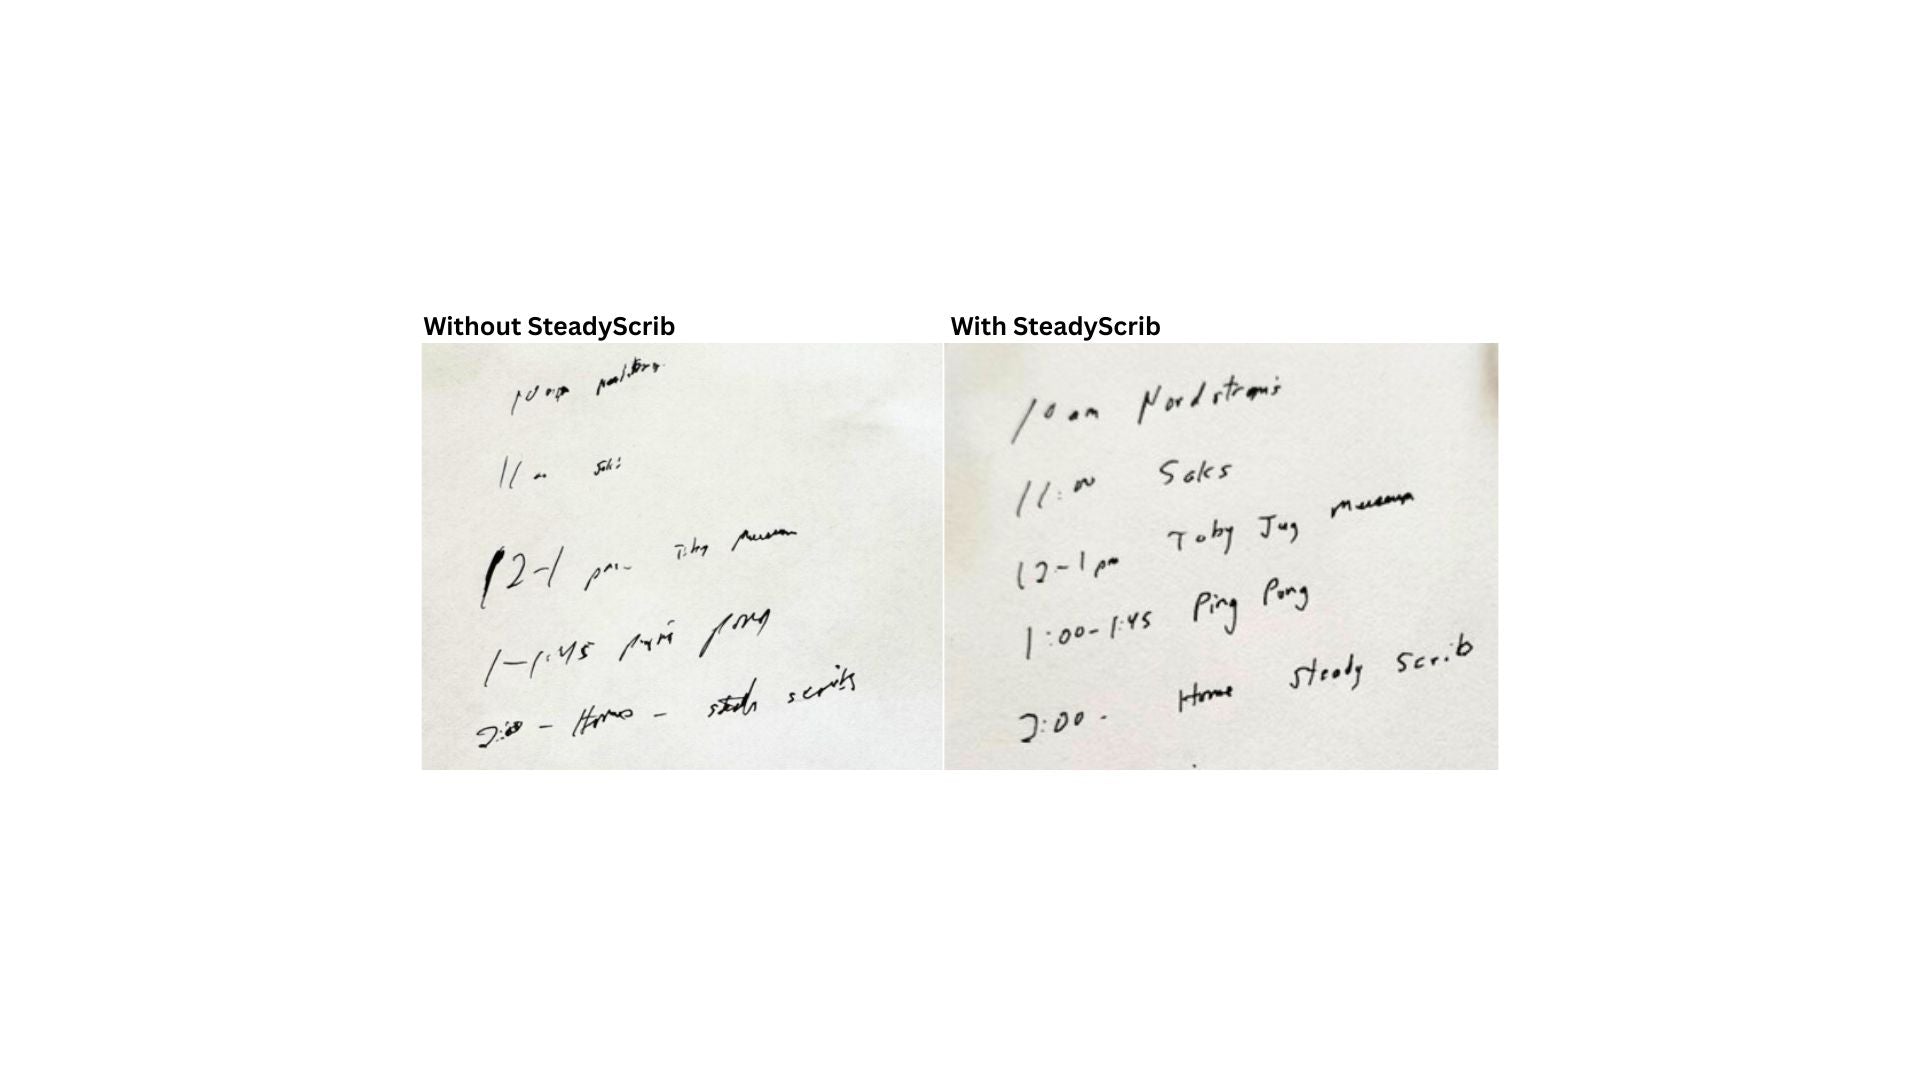 Without SteadyScrib
10am
11
12-1 pm Toby Museum
1-1:45 pong
2:00 - Home - scrib
With SteadyScrib
10 am Nordstrom's
11:00 Saks
12-1pm Toby Jug museum
1:00-1:45 Ping Pong
2:00 - Home Steady Scrib